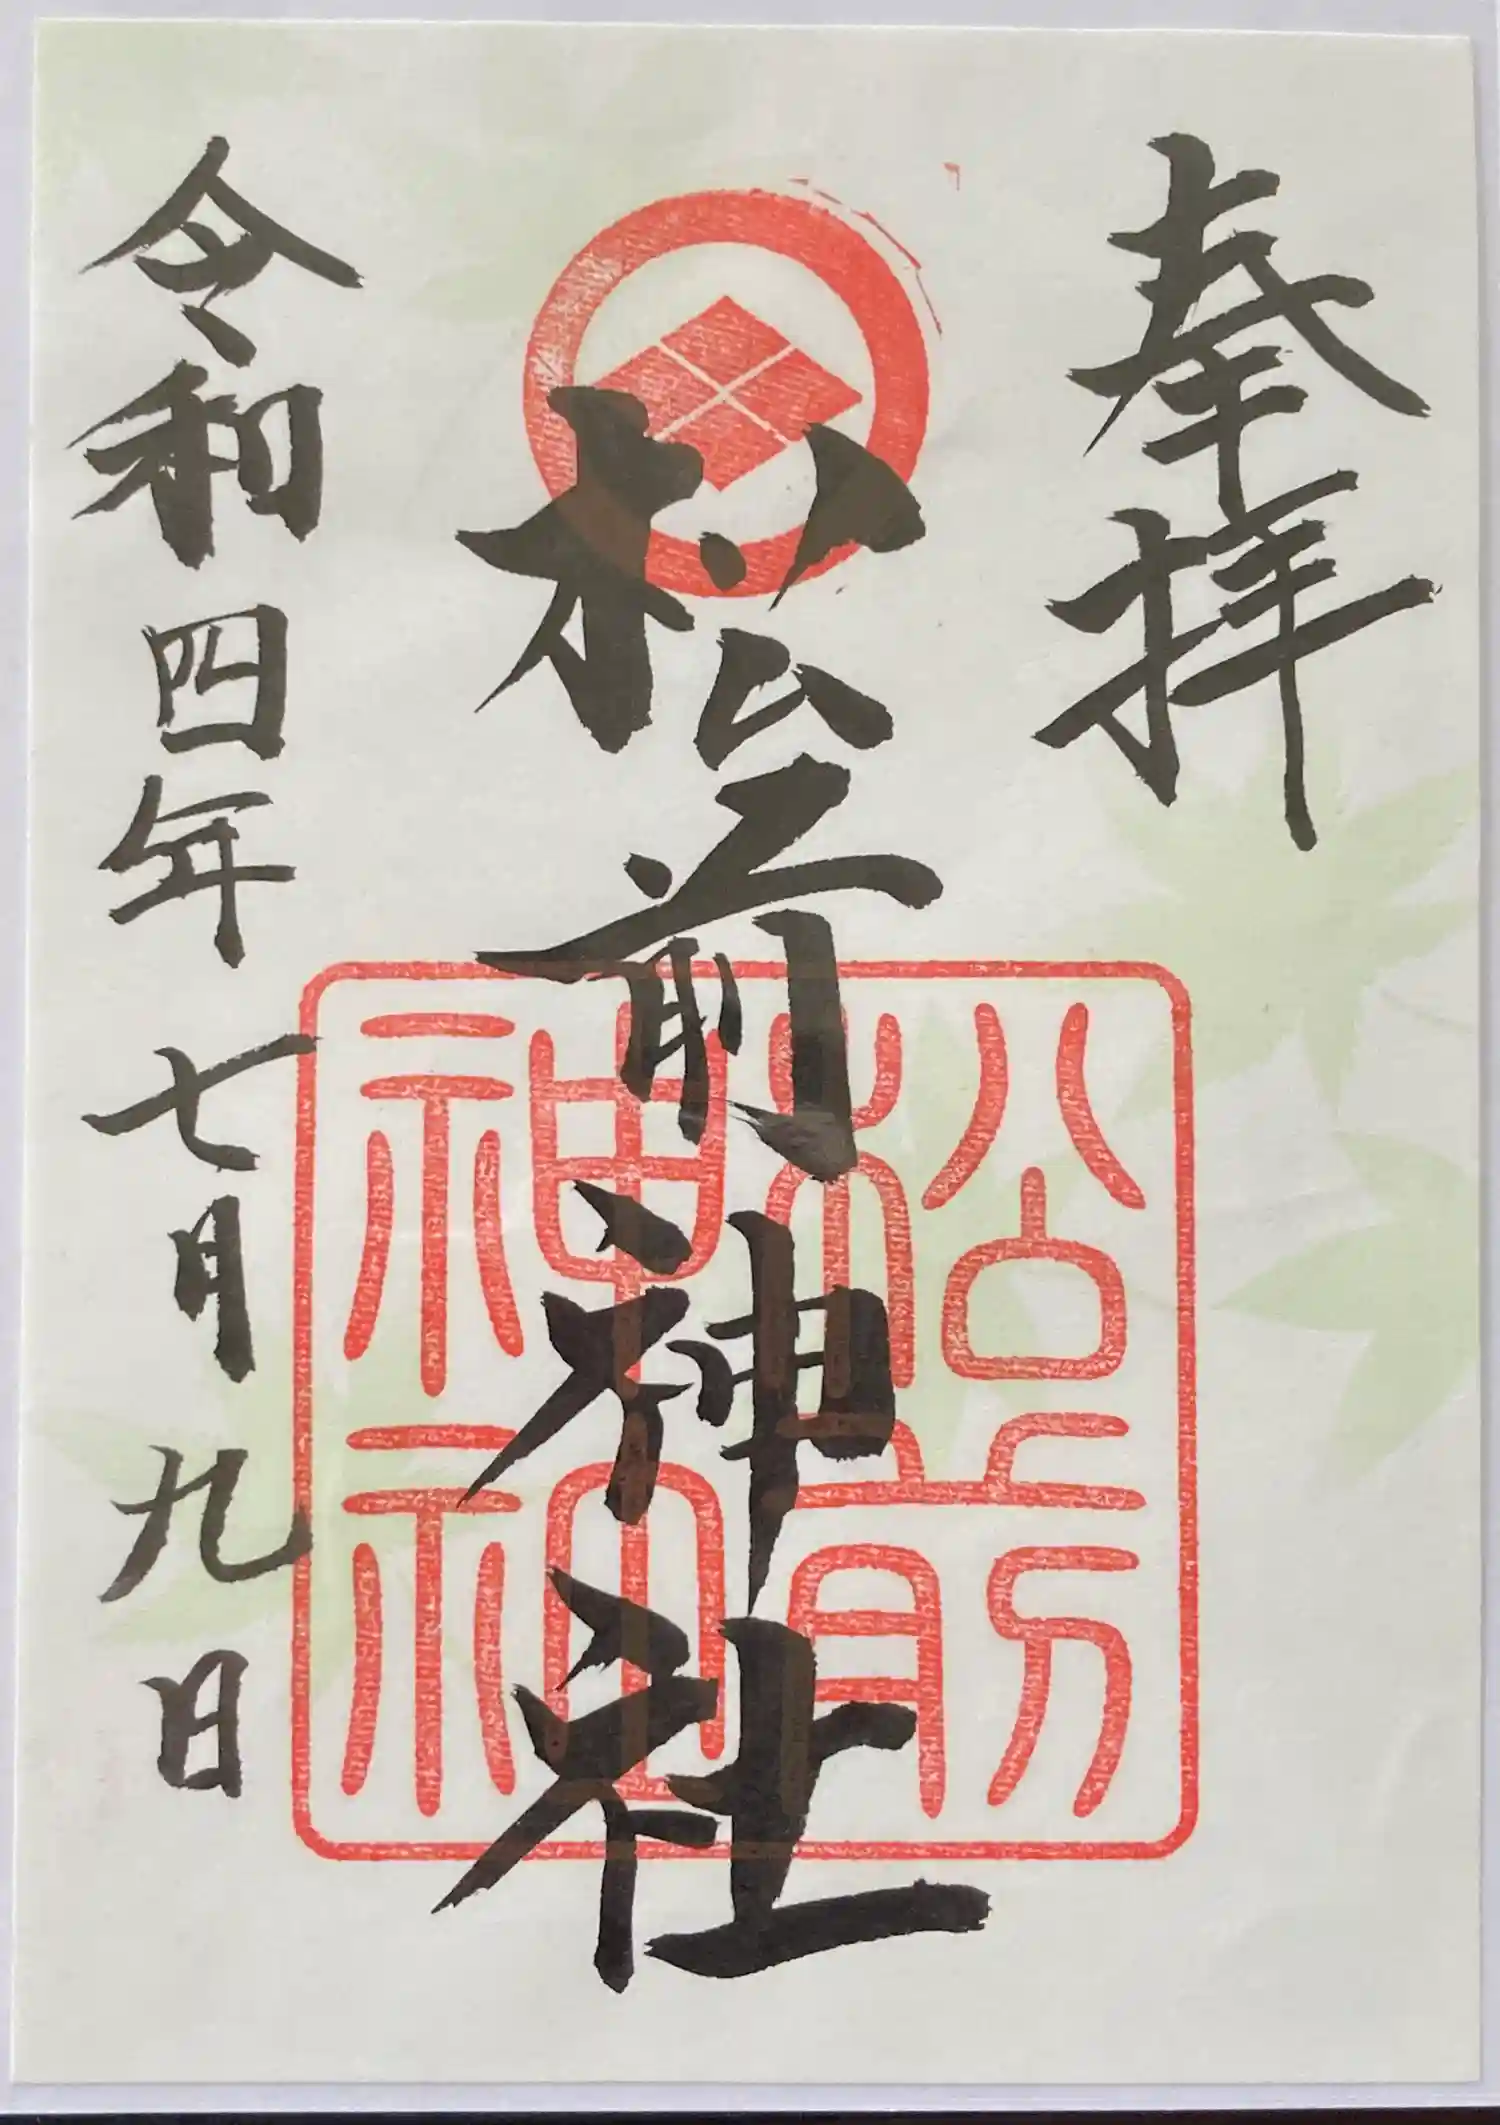 奉拝
松前神社
松前神社
令和四年七月九日